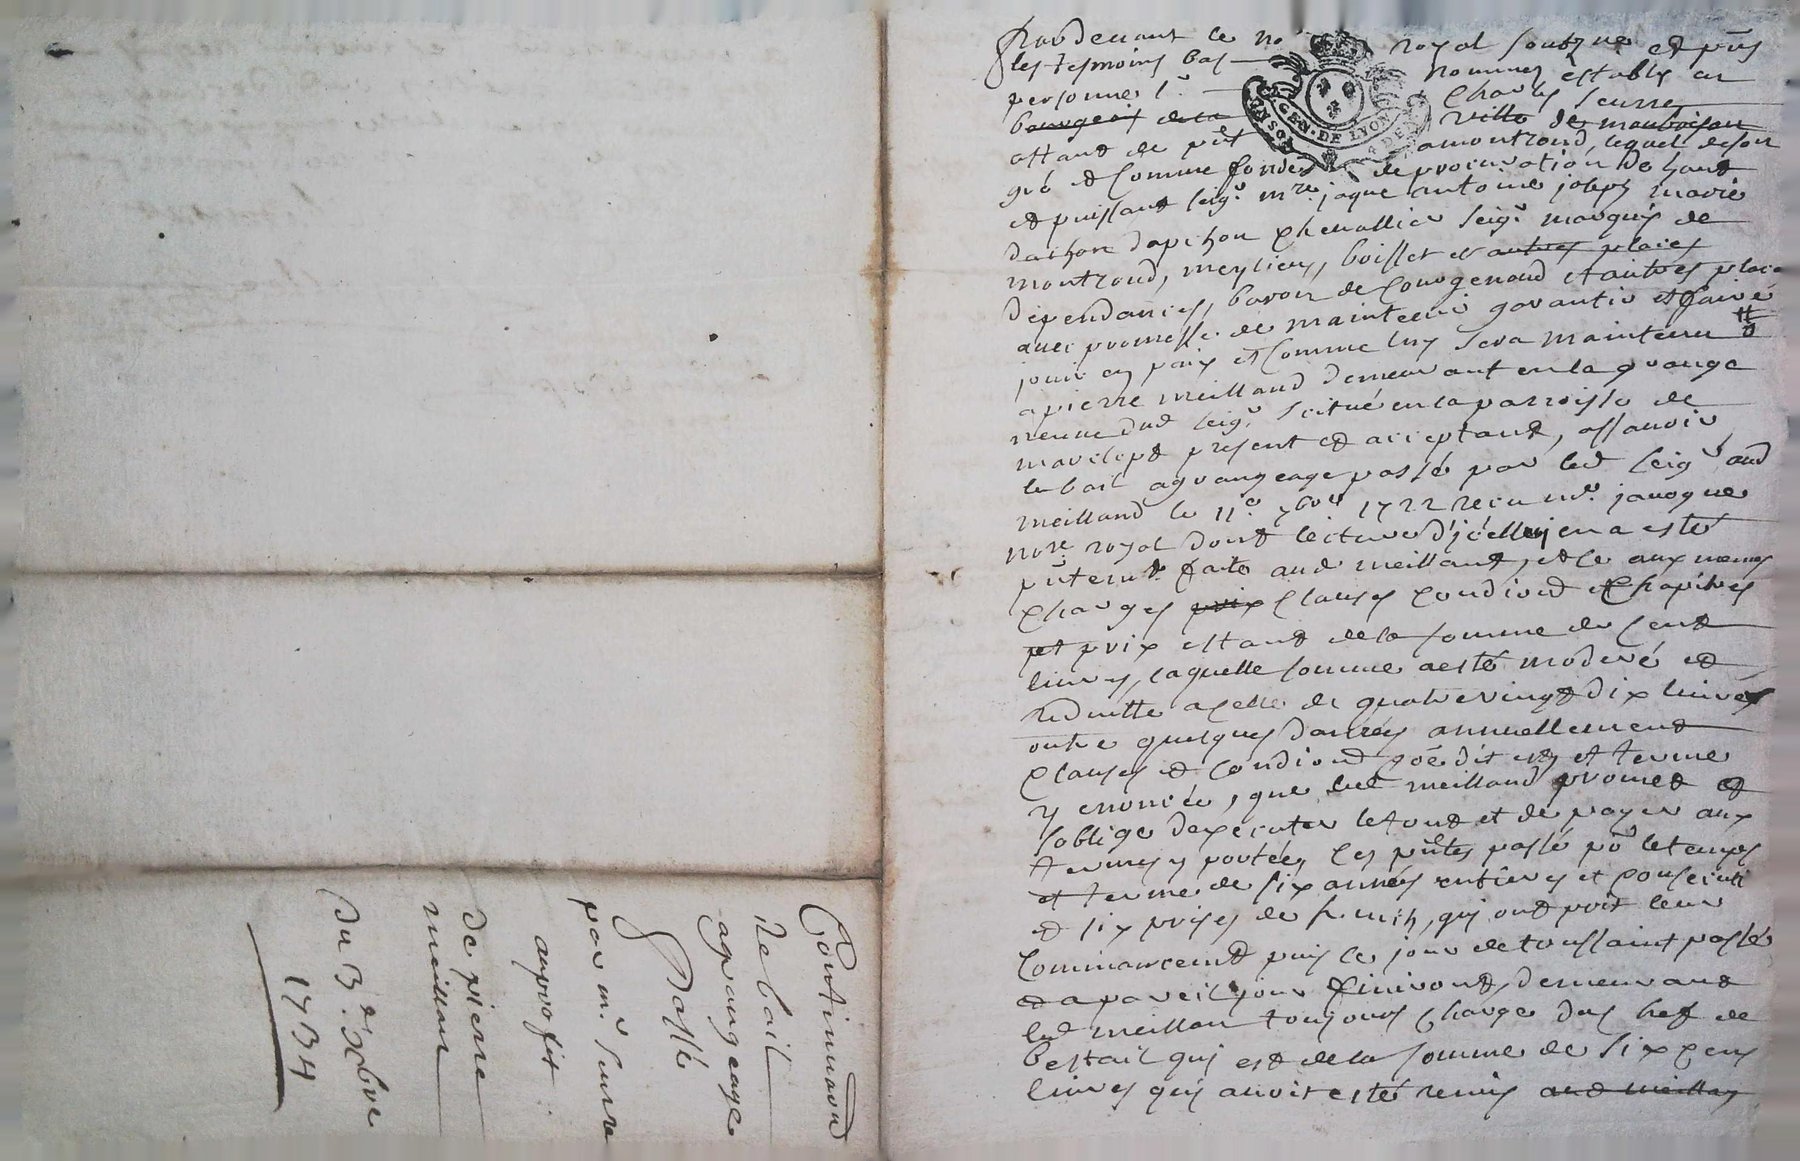 Pardevant le no.re royal soubzne et pnts
les tesmoins bas nommez establis en
personne s.r Charles seurre
bourgeois de la ville de monbrison
estant de pnt a montrond, lequel de son
gré et comme fondé de procuration de haut
et puissant seig.r m.re jaque antoine joseph marie
dachon dapchon chevallier seig.r marquis de
montrond, meylieu, boisset et autres places
dependances, baron de Courgenoud et autres place
avec promesse de maintenir garantir et faire
jouir en paix et comme luy sera maintenu
a pierre meilland demeurant en la grange
neuve dud seig.r scitué en la parroisse de
marclopt present et acceptant, assavoir
le bail a grangeage passé par led seig.r aud
meilland le 11.e 7bre 1722 receu m.e javogue
no.re royal dont lecture d'jcelluy en a esté
pntemt faite aud meilland, et ce aux mesmes
charges prix clauses condiond et chapitres
et prix estant de la somme de cent
livres, laquelle somme a esté moderé et
reduitte a celle de quatre vingt dix livres
outre quelques danrées annuellement
clauses et condiond et terme
y enoncée, que led meilland promet et
soblige dexecuter le tout et de payer aux
termes y portées les pntes passé po.r le temps
et terme de six années entieres et consecuti
et six prises de fruits, qui ont prit leur
commancemt puis le jour de toussaint passé
et a pareil jour finiront, demeurant
led meillan toujours chargé du chef de
bestail qui est de la somme de six cens
livres qui avoit esté remis aud meillan
Continuaon
de bail
a grangeage
Passé
par m.r seurre
au profit
de pierre
meillan
Du 3.e Xbre
1734
GEN. DE LYON